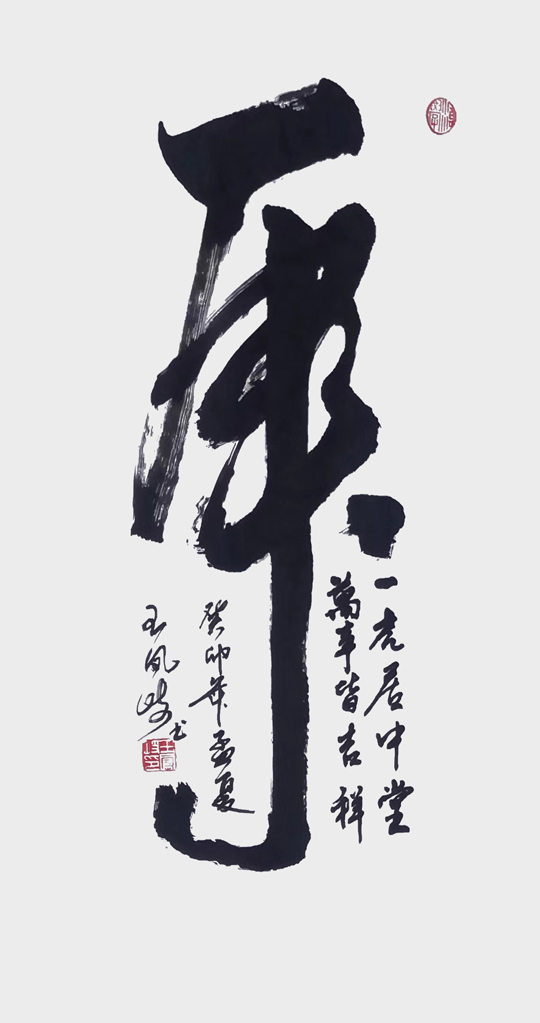 虎
一虎居中堂
萬事皆吉祥
癸卯年孟夏
王凤岐书